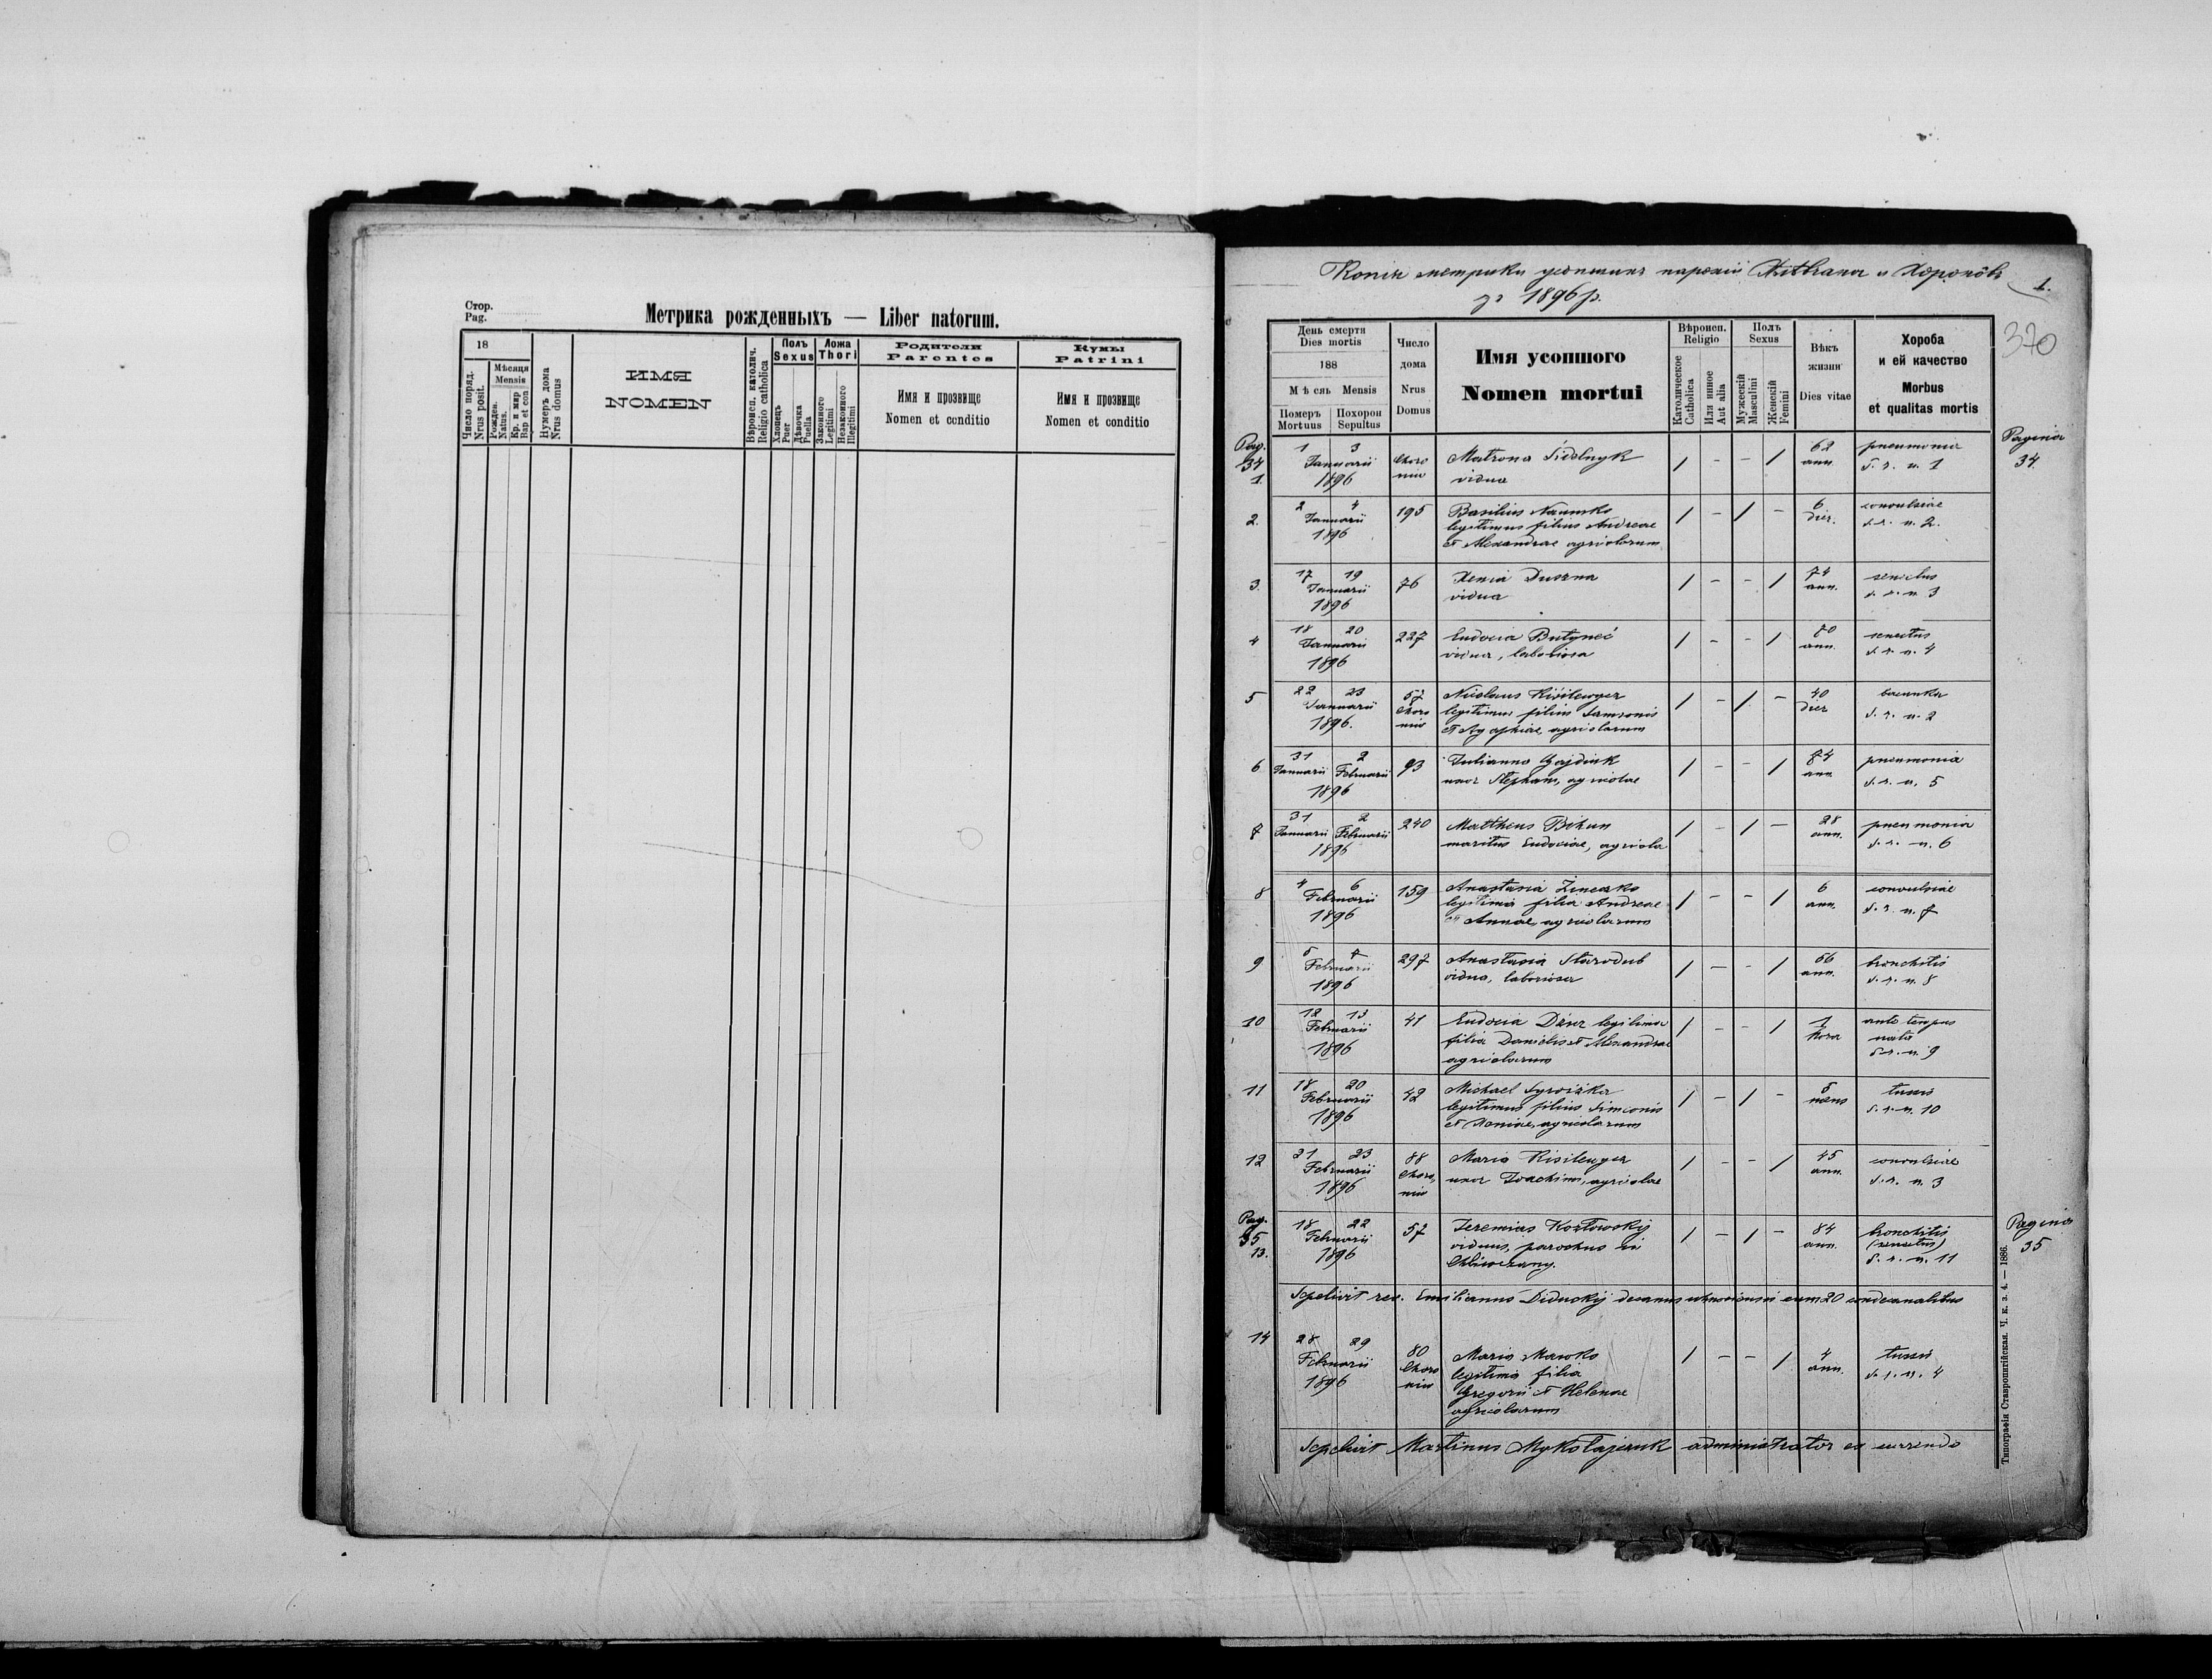 Стор.
Pag.
Метрика рожденныхъ — Liber natorum.
18
Число поряд.
Nrus posit.
Мѣсяця
Mensis
Рожден.
Natus.
Кр. и мир
Bap et con
Нумеръ дома
Nrus domus
ИМЯ
NOMEN
Вѣроисп. католич.
Religio catholica
Полъ
Sexus
Хлопецъ
Puer
Дѣвочка
Puella
Ложа
Thori
Законного
Legitimi
Незаконного
Illegitimi
Родители
Parentes
Имя и прозвище
Nomen et conditio
Кумы
Patrini
Имя и прозвище
Nomen et conditio
Копія метрики усопших парохіи и Хороновъ
зъ 1896 р.
1.
370
День смерти
Dies mortis
188
Мѣсяь Mensis
Померъ
Mortuus
Похорон
Sepultus
Число
дома
Nrus
Domus
Имя усопшого
Nomen mortui
Вѣроисп.
Religio
Католическое
Catholica
Или инное
Aut alia
Полъ
Sexus
Мужескій
Masculini
Женскій
Femini
Вѣкъ
жизни
Dies vitae
Хороба
и ей качество
Morbus
et qualitas mortis
Pag.
34
1.
1 3
Januarii
1896
Choro
niw
Matrona Sidelnyk
vidua
/ - - /
62
ann.
pneumonia
s. r. n. 1
Pagina
34.
2.
2 4
Januarii
1896
195
Basilius Naumko
legitimus filius Andreae
et Alexandrae agricolarum
/ - / -
6
dier.
convulsiae
s. r. n. 2.
3.
17 19
Januarii
1896
76
Xenia Duszna
vidua
/ - - /
74
ann.
senectus
s. r. n. 3
4
18 20
Januarii
1896
227
Eudocia Butyneć
vidua, laboriosa
/ - - /
70
ann.
senectus
s. r. n. 4
5
22 23
Januarii
1896.
57
Choro
niw
Nicolaus Kisilewycz
legitimus filius Samsonis
et Agaphiae, agricolarum
/ - / -
40
dier
s. r. n. 2
6
31 2
Januarii Februarii
1896
93
Julianna Gajdiuk
uxor Stephani, agricolae
/ - - /
74
ann
pneumonia
s. r. n. 5
7
31 2
Januarii Februarii
1896
240
Mattheus Bihun
maritus Eudociae, agricola
/ - / -
28
ann.
pneumonia
s. r. n. 6
8
4 6
Februarii
1896
159
Anastasia
legitima filia Andreae
et Annae, agricolarum
/ - - /
6
ann.
convulsiae
s. r. n. 7
9
5 7
Februarii
1896
297
Anastasia Starodub
vidua, laboriosa
/ - - /
66
ann.
bronchitis
s. r. n. 8
10
12 13
Februarii
1896
41
Eudocia legitima
filia Danielis et Alexandrae
agricolarum
/ - - /
1
hora
ante tempus
nata
s. r. n. 9
11
18 20
Februarii
1896
42
Michael Syroiżka
legitimus filius Simeonis
et Xeniae, agricolarum
/ - / -
5
mens
tussis
s. r. n. 10
12
21 23
Februarii
1896
88
Choro,
niw
Maria Kisilewycz
uxor Joachimi, agricolae
/ - - /
45
ann.
convulsiae
s. r. n. 3
Pag.
35
13.
18 22
Februarii
1896
57
Jeremias Kozłowskij
viduus, parochus in
Chliwczany.
/ - / -
84
ann.
bronchitis
(senectus)
s. r. n. 11
Pagina
35
Sepelivit rev. Emilianus Diduskij decanus uhnoviensis cum 20 condecanalibus
14
28 29
Februarii
1896
80
Choro
niw
Maria Mawko
legitima filia
Gregorii et Helenae
agricolarum
/ - - /
4
ann.
tussis
s. r. n. 4
Sepelivit Martinus Mykołajczuk administrator ex currendo
Типографія Ставропигійская. Ч. к. з. 4. — 1886.